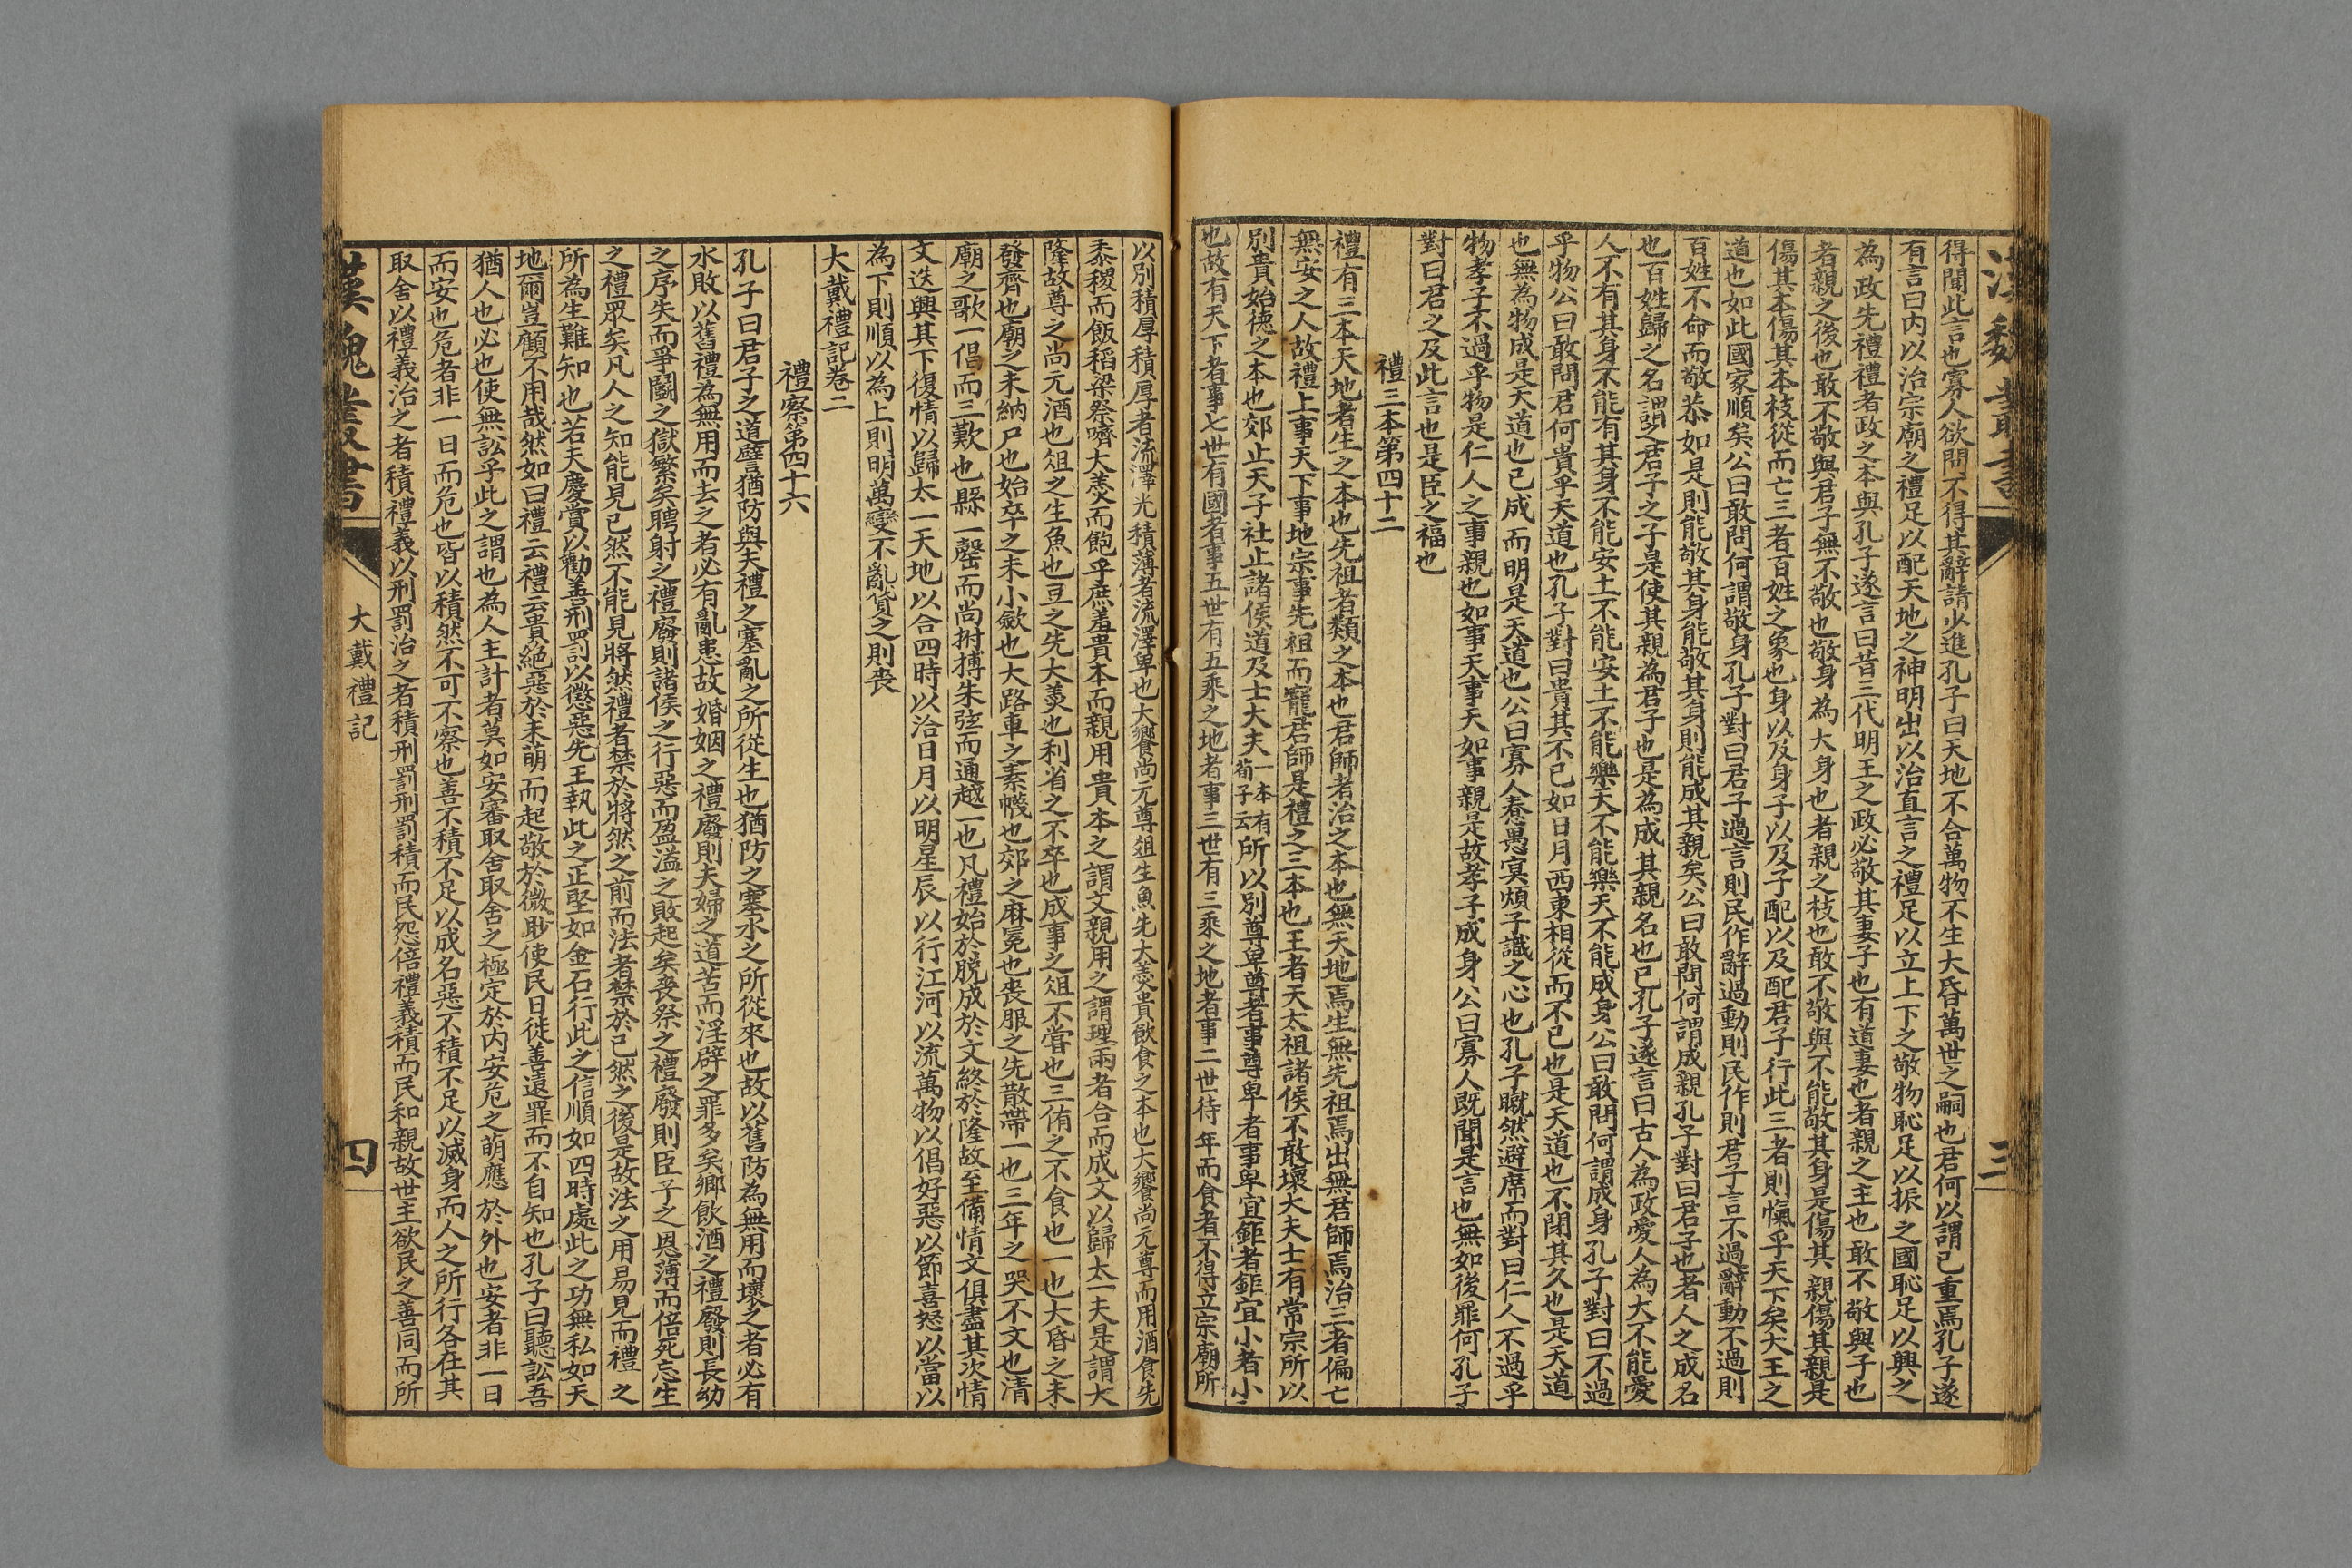 漢魏叢書
三
得聞此言也寡人欲問不得其辭請少進孔子曰天地不合萬物不生大昏萬世之嗣也君何以謂已重焉孔子遂
有言曰内以治宗廟之禮足以配天地之神明出以治直言之禮足以立上下之敬物恥足以振之國恥足以興之
為政先禮禮者政之本與孔子遂言曰昔三代明王之政必敬其妻子也有道妻也者親之主也敢不敬與子也
者親之後也敢不敬與君子無不敬也敬身為大身也者親之枝也敢不敬與不能敬其身是傷其親傷其親是
傷其本傷其本枝從而亡三者百姓之象也身以及身子以及子配以及配君子行此三者則愾乎天下矣大王之
道也如此國家順矣公曰敢問何謂敬身孔子對曰君子過言則民作辭過動則民作則君子言不過辭動不過則
百姓不命而敬恭如是則能敬其身能敬其身則能成其親矣公曰敢問何謂成親孔子對曰君子也者人之成名
也百姓歸之名謂之君子之子是使其親為君子也是為成其親名也已孔子遂言曰古人為政愛人為大不能愛
人不有其身不能有其身不能安土不能安土不能樂天不能樂天不能成身公曰敢問何謂成身孔子對曰不過
乎物公曰敢問君何貴乎天道也孔子對曰貴其不已如日月西東相從而不已也是天道也不閉其久也是天道
也無為物成是天道也已成而明是天道也公曰寡人惷愚冥煩子識之心也孔子蹴然避席而對曰仁人不過乎
物孝子不過乎物是仁人之事親也如事天事天如事親是故孝子成身公曰寡人既聞是言也無如後罪何孔子
對曰君之及此言也是臣之福也
禮三本第四十二
禮有三本天地者生之本也先祖者類之本也君師者治之本也無天地焉生無先祖焉出無君師焉治三者偏亡
無安之人故禮上事天下事地宗事先祖而寵君師是禮之三本也王者天太祖諸侯不敢壞大夫士有常宗所以
別貴始德之本也郊止天子社止諸侯道及士大夫一本有荀子云所以別尊卑尊者事尊卑者事卑宜鉅者鉅宜小者小
也故有天下者事七世有國者事五世有五乘之地者事三世有三乘之地者事二世待年而食者不得立宗廟所
以別積厚積厚者流澤光積薄者流澤卑也大饗尚元尊俎生魚先大羹貴飲食之本也大饗尚元尊而用酒食先
黍稷而飯稻粱祭嚌大羹而飽乎庶羞貴本而親用貴本之謂文親用之謂理兩者合而成文以歸太一夫是謂大
隆故尊之尚元酒也俎之生魚也豆之先大羹也利省之不卒也成事之俎不嘗也三侑之不食也一也大昏之未
發齊也廟之未納尸也始卒之未小斂也大路車之素幭也郊之麻冕也喪服之先散帶一也三年之哭不文也清
廟之歌一倡而三歎也縣一罄而尚拊搏朱弦而通越一也凡禮始於脫成於文終於隆故至備情文俱盡其次情
文迭興其下復情以歸太一天地以合四時以洽日月以明星辰以行江河以流萬物以倡好惡以節喜怒以當以
為下則順以為上則明萬變不亂貸之則喪
大戴禮記卷二
禮察第四十六
孔子曰君子之道譬猶防與夫禮之塞亂之所從生也猶防之塞水之所從來也故以舊防為無用而壞之者必有
水敗以舊禮為無用而去之者必有亂患故婚姻之禮廢則夫婦之道苦而淫辟之罪多矣鄉飲酒之禮廢則長幼
之序失而爭鬭之獄繁矣聘射之禮廢則諸侯之行惡而盈溢之敗起矣喪祭之禮廢則臣子之恩薄而倍死忘生
之禮眾矣凡人之知能見已然不能見將然禮者禁於將然之前而法者禁於已然之後是故法之用易見而禮之
所為生難知也若夫慶賞以勸善刑罰以懲惡先王執此之正堅如金石行此之信順如四時處此之功無私如天
地爾豈顧不用哉然如曰禮云禮云貴絕惡於未萌而起敬於微眇使民日徙善遠罪而不自知也孔子曰聽訟吾
猶人也必也使無訟乎此之謂也為人主計者莫如安審取舍取舍之極定於内安危之萌應於外也安者非一日
而安也危者非一日而危也皆以積然不可不察也善不積不足以成名惡不積不足以滅身而人之所行各在其
取舍以禮義治之者積禮義以刑罰治之者積刑罰刑罰積而民怨倍禮義積而民和親故世主欲民之善同而所
漢魏叢書
大戴禮記
四